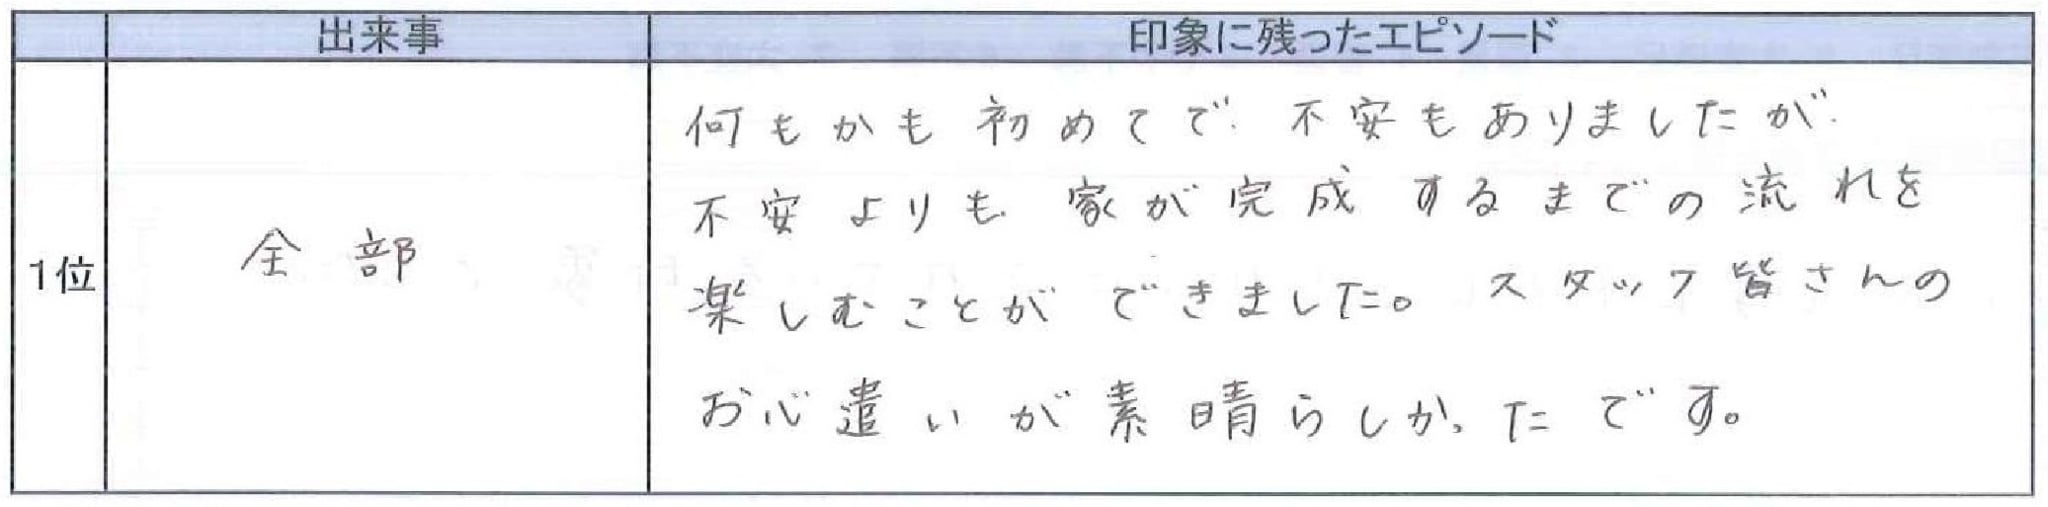 出来事
印象に残ったエピソード
1位
全部
何もかも初めてで 不安もありましたが
不安よりも 家が完成するまでの流れを
楽しむことができました。スタッフ皆さんの
お心遣いが素晴らしかったです。